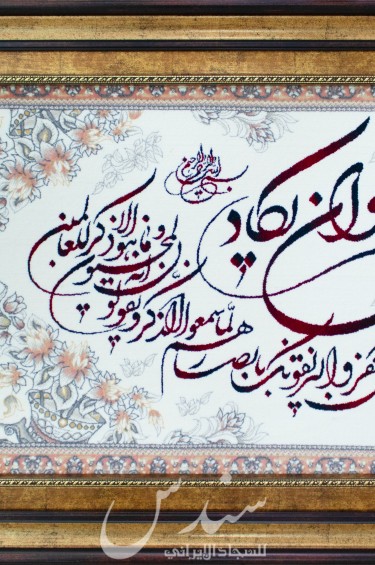 بسم الله الرحمن الرحیم
وان یکاد
کفروا لیزلقونک بابصارهم
لما سمعوا الذکر و یقولون
انه لمجنون
و ما هو الا ذکر للعالمین
سندس
للسجاد الايراني